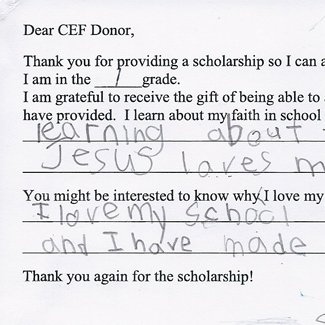 Dear CEF Donor,
Thank you for providing a scholarship so I can a
I am in the 1 grade.
I am grateful to receive the gift of being able to
have provided. I learn about my faith in school
learning about
Jesus loves m
You might be interested to know why I love my
I love my school
and I have made
Thank you again for the scholarship!